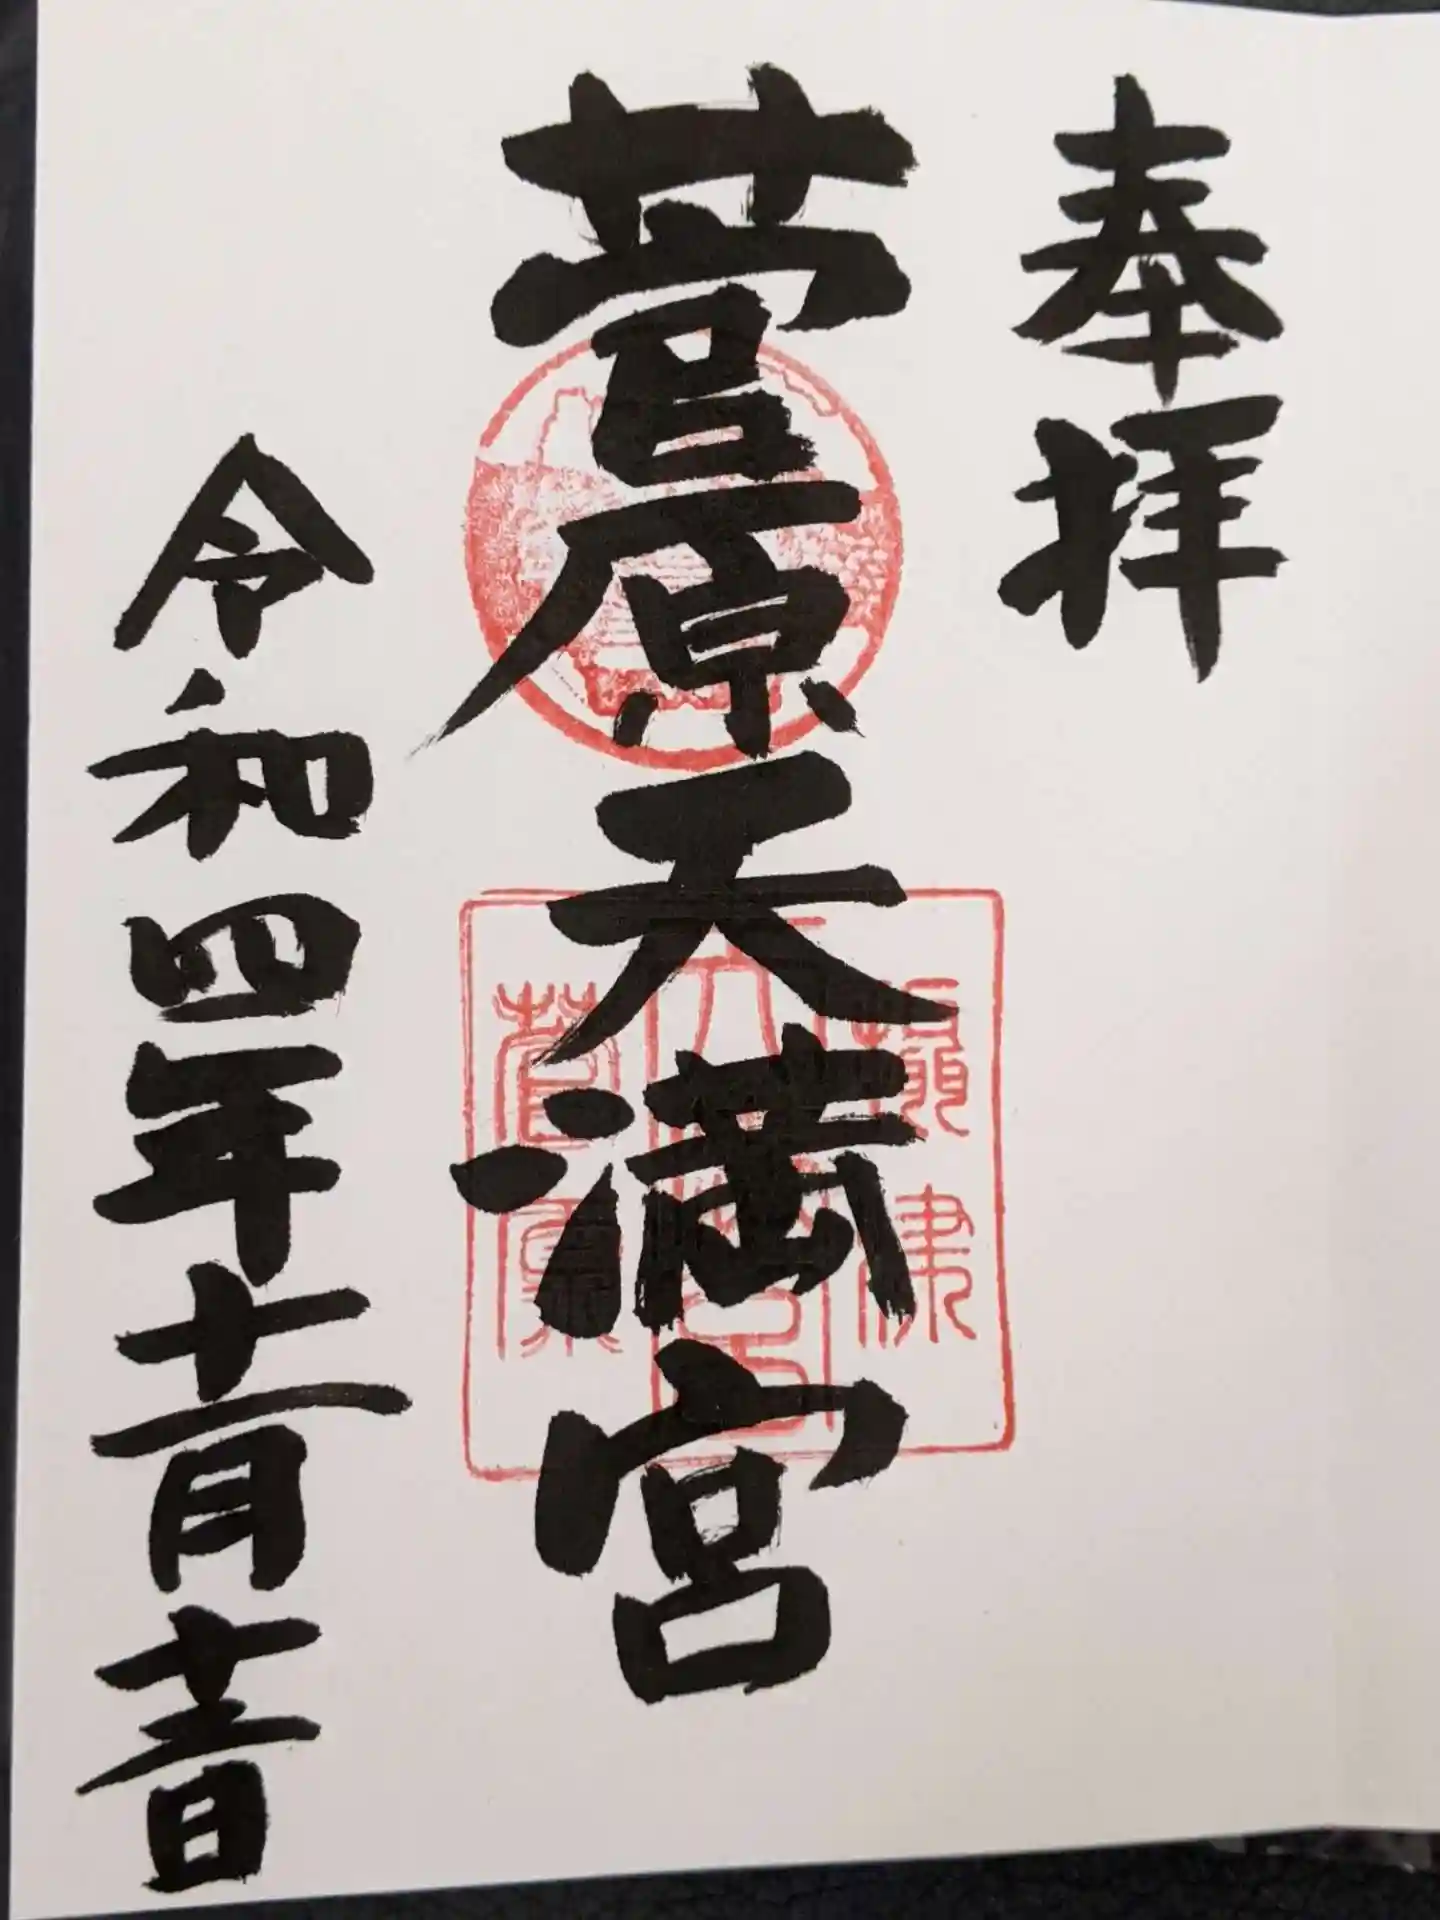 奉拝
菅原天満宮
令和四年十一月十二日
菅原